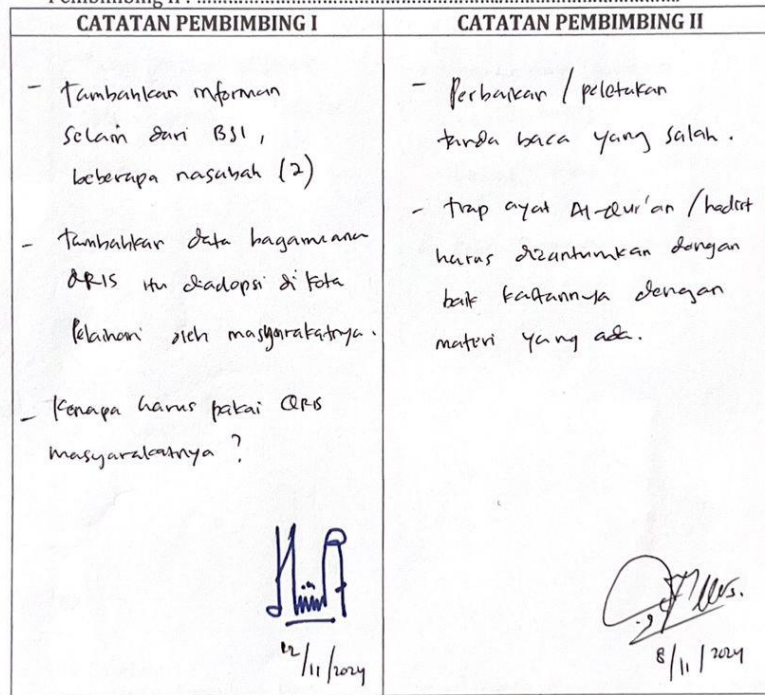 Pembimbing II : ........................................................................................
CATATAN PEMBIMBING I
- Tambahkan informan
selain dari BSI,
beberapa nasabah (2)
- Tambahkan data bagaimana
QRIS itu diadopsi di kota
Pelaihari oleh masyarakatnya.
- Kenapa harus pakai QRIS
masyarakatnya ?
12/11/2024
CATATAN PEMBIMBING II
- Perbaikan / peletakan
tanda baca yang salah.
- tiap ayat Al-Qur'an / hadist
harus dicantumkan dengan
baik kaitannya dengan
materi yang ada.
8/11/2024